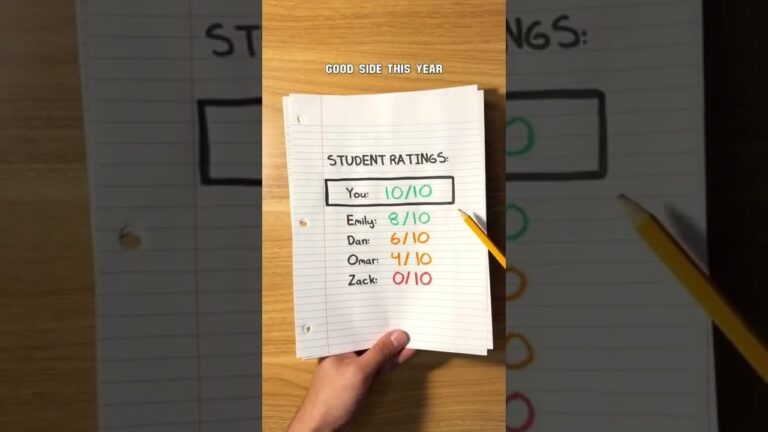 GOOD SIDE THIS YEAR
STUDENT RATINGS:
You: 10/10
Emily: 8/10
Dan: 6/10
Omar: 4/10
Zack: 0/10